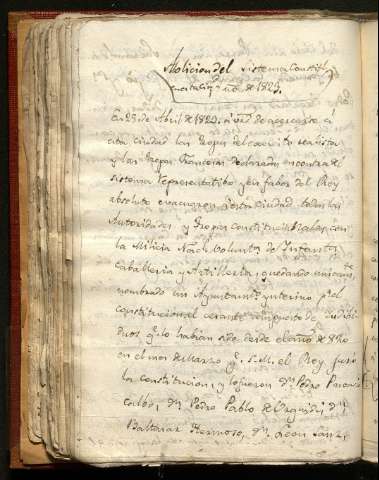 Abolicion del sistema Constitl
en esta Ciud. año de 1823.
En 25 de Abril de 1823. a virtud de acercarse á
esta Ciudad las tropas del exercito realista
y las tropas Francesas declaradas en contra del
sistema representatibo y en fabor del Rey
absoluto evacuaron á esta Ciudad todas las
Autoridades y tropa constitucionales, con
la Milicia Nacl. Volunta. de Infanta.
Caballeria y Artilleria, quedando unicame.
nombrado un Ayuntamto. ynterino pr. el
constitucional cesante compuesto de Indibi
duos qe. lo habian sido desde el año de 1820
en el mes de Marzo qe. S. M. el Rey juró
la constitucion, y lo fueron dn. Pedro
dn. Pedro Pablo de dn.
Baltasar Hermoso, dn. Leon Sanz,